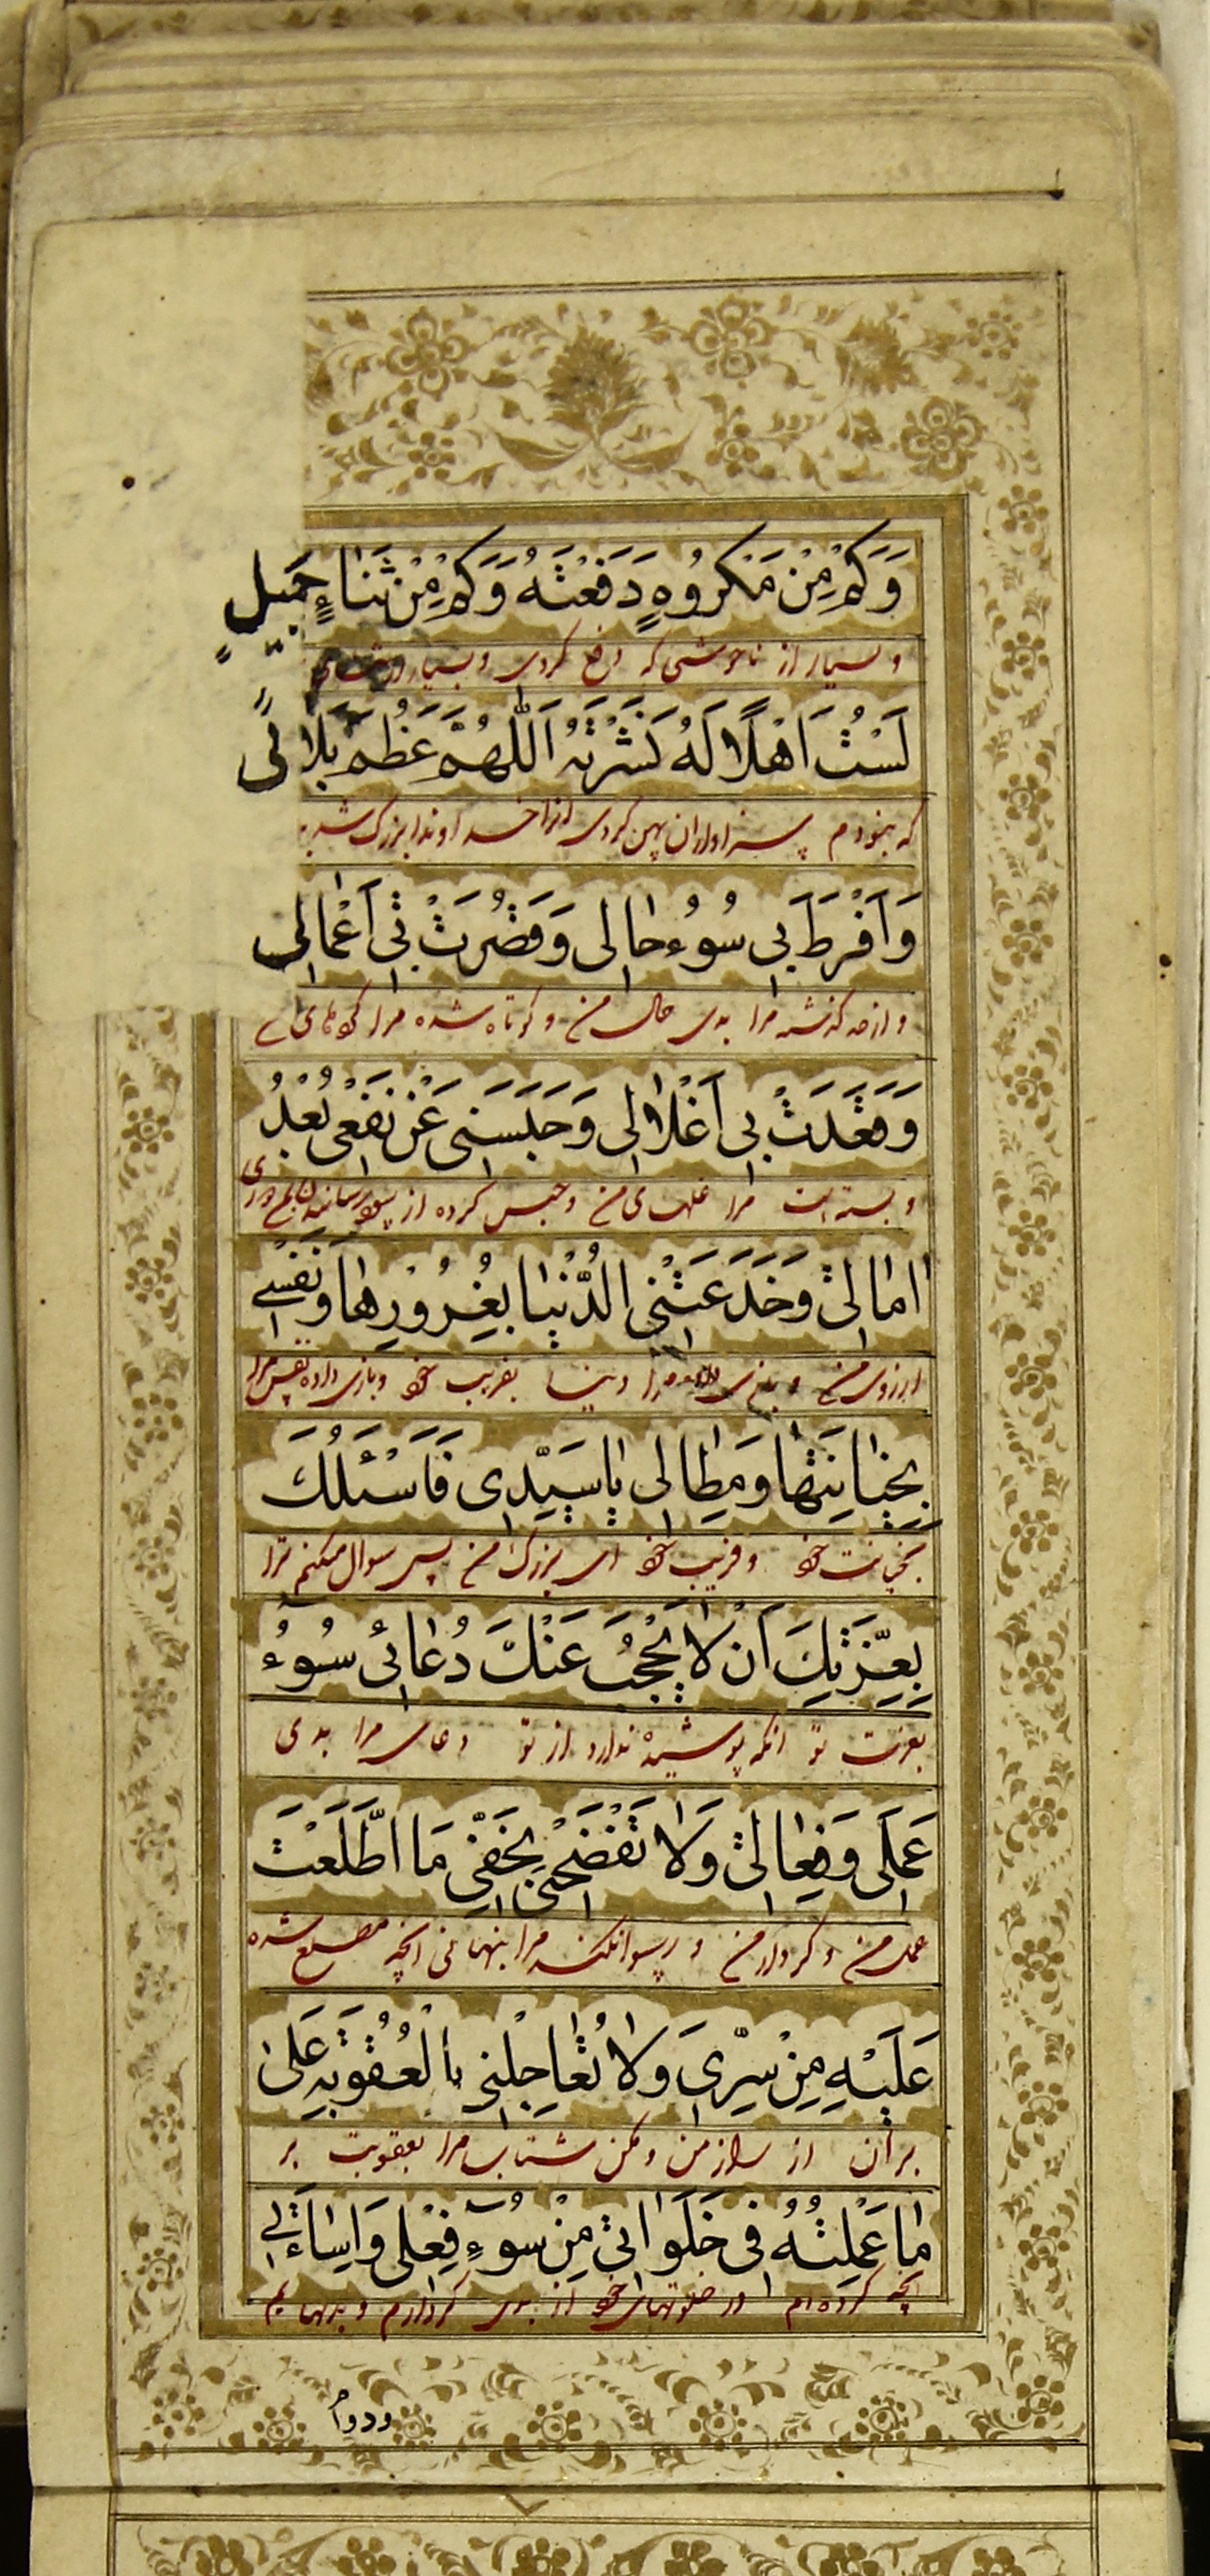 وَكَمْ مِنْ مَكْرُوهٍ دَفَعْتَهُ وَكَمْ مِنْ ثَنٰاءٍ جَمیلٍ
و بسیار از ناخوشی که دفع کردی و بسیار
لَسْتُ اَهْلًا لَهُ نَشَرْتَهُ اَللّٰهُمَّ عَظُمَ بَلائی
که نبودم سزاوار ان پهن کردی انرا خداوندا بزرگ شد
وَ اَفْرَطَ بی سُوءُ حالی وَ قَصُرَتْ بی اَعْمالی
و از حد گذشته مرا بدی حال من و کوتاه شده مرا
وَ قَعَدَتْ بی اَغْلٰالی وَ حَبَسَنی عَنْ نَفْعی بُعْدُ
و بسته است مرا غلهای من و حبس کرده از دوری
اٰمٰالی وَ خَدَعَتْنِی الدُّنْیٰا بِغُرُورِهٰا وَ نَفْسی
ارزوی من و مرا دنیا بفریب خود و بازی داده نفس مرا
بِخِیٰانَتِهٰا وَ مِطٰالی یٰا سَیِّدی فَاَسْئَلُكَ
بخیانت خود و فریب خود ای بزرگ من پس سوال میکنم ترا
بِعِزَّتِكَ اَنْ لٰا یَحْجُبَ عَنْكَ دُعٰائی سُوءُ
بعزت تو انکه پوشیده ندارد از تو دعای مرا بدی
عَمَلی وَ فِعٰالی وَ لٰا تَفْضَحْنی بِخَفِیِّ مَا اطَّلَعْتَ
عمل من و کردار من و رسوا نکن مرا بنهانی انچه مطلع شده
عَلَیْهِ مِنْ سِرّی وَ لٰا تُعٰاجِلْنی بِالْعُقُوبَهِ عَلیٰ
بر آن از راز من و مکن شتاب مرا بعقوبت بر
مٰا عَمِلْتُهُ فی خَلَوٰاتی مِنْ سُوءِ فِعْلی وَ اِسٰاءَتی
انچه کرده ام در خلوتهای خود از بدی کردارم و بدیهایم
ودوام